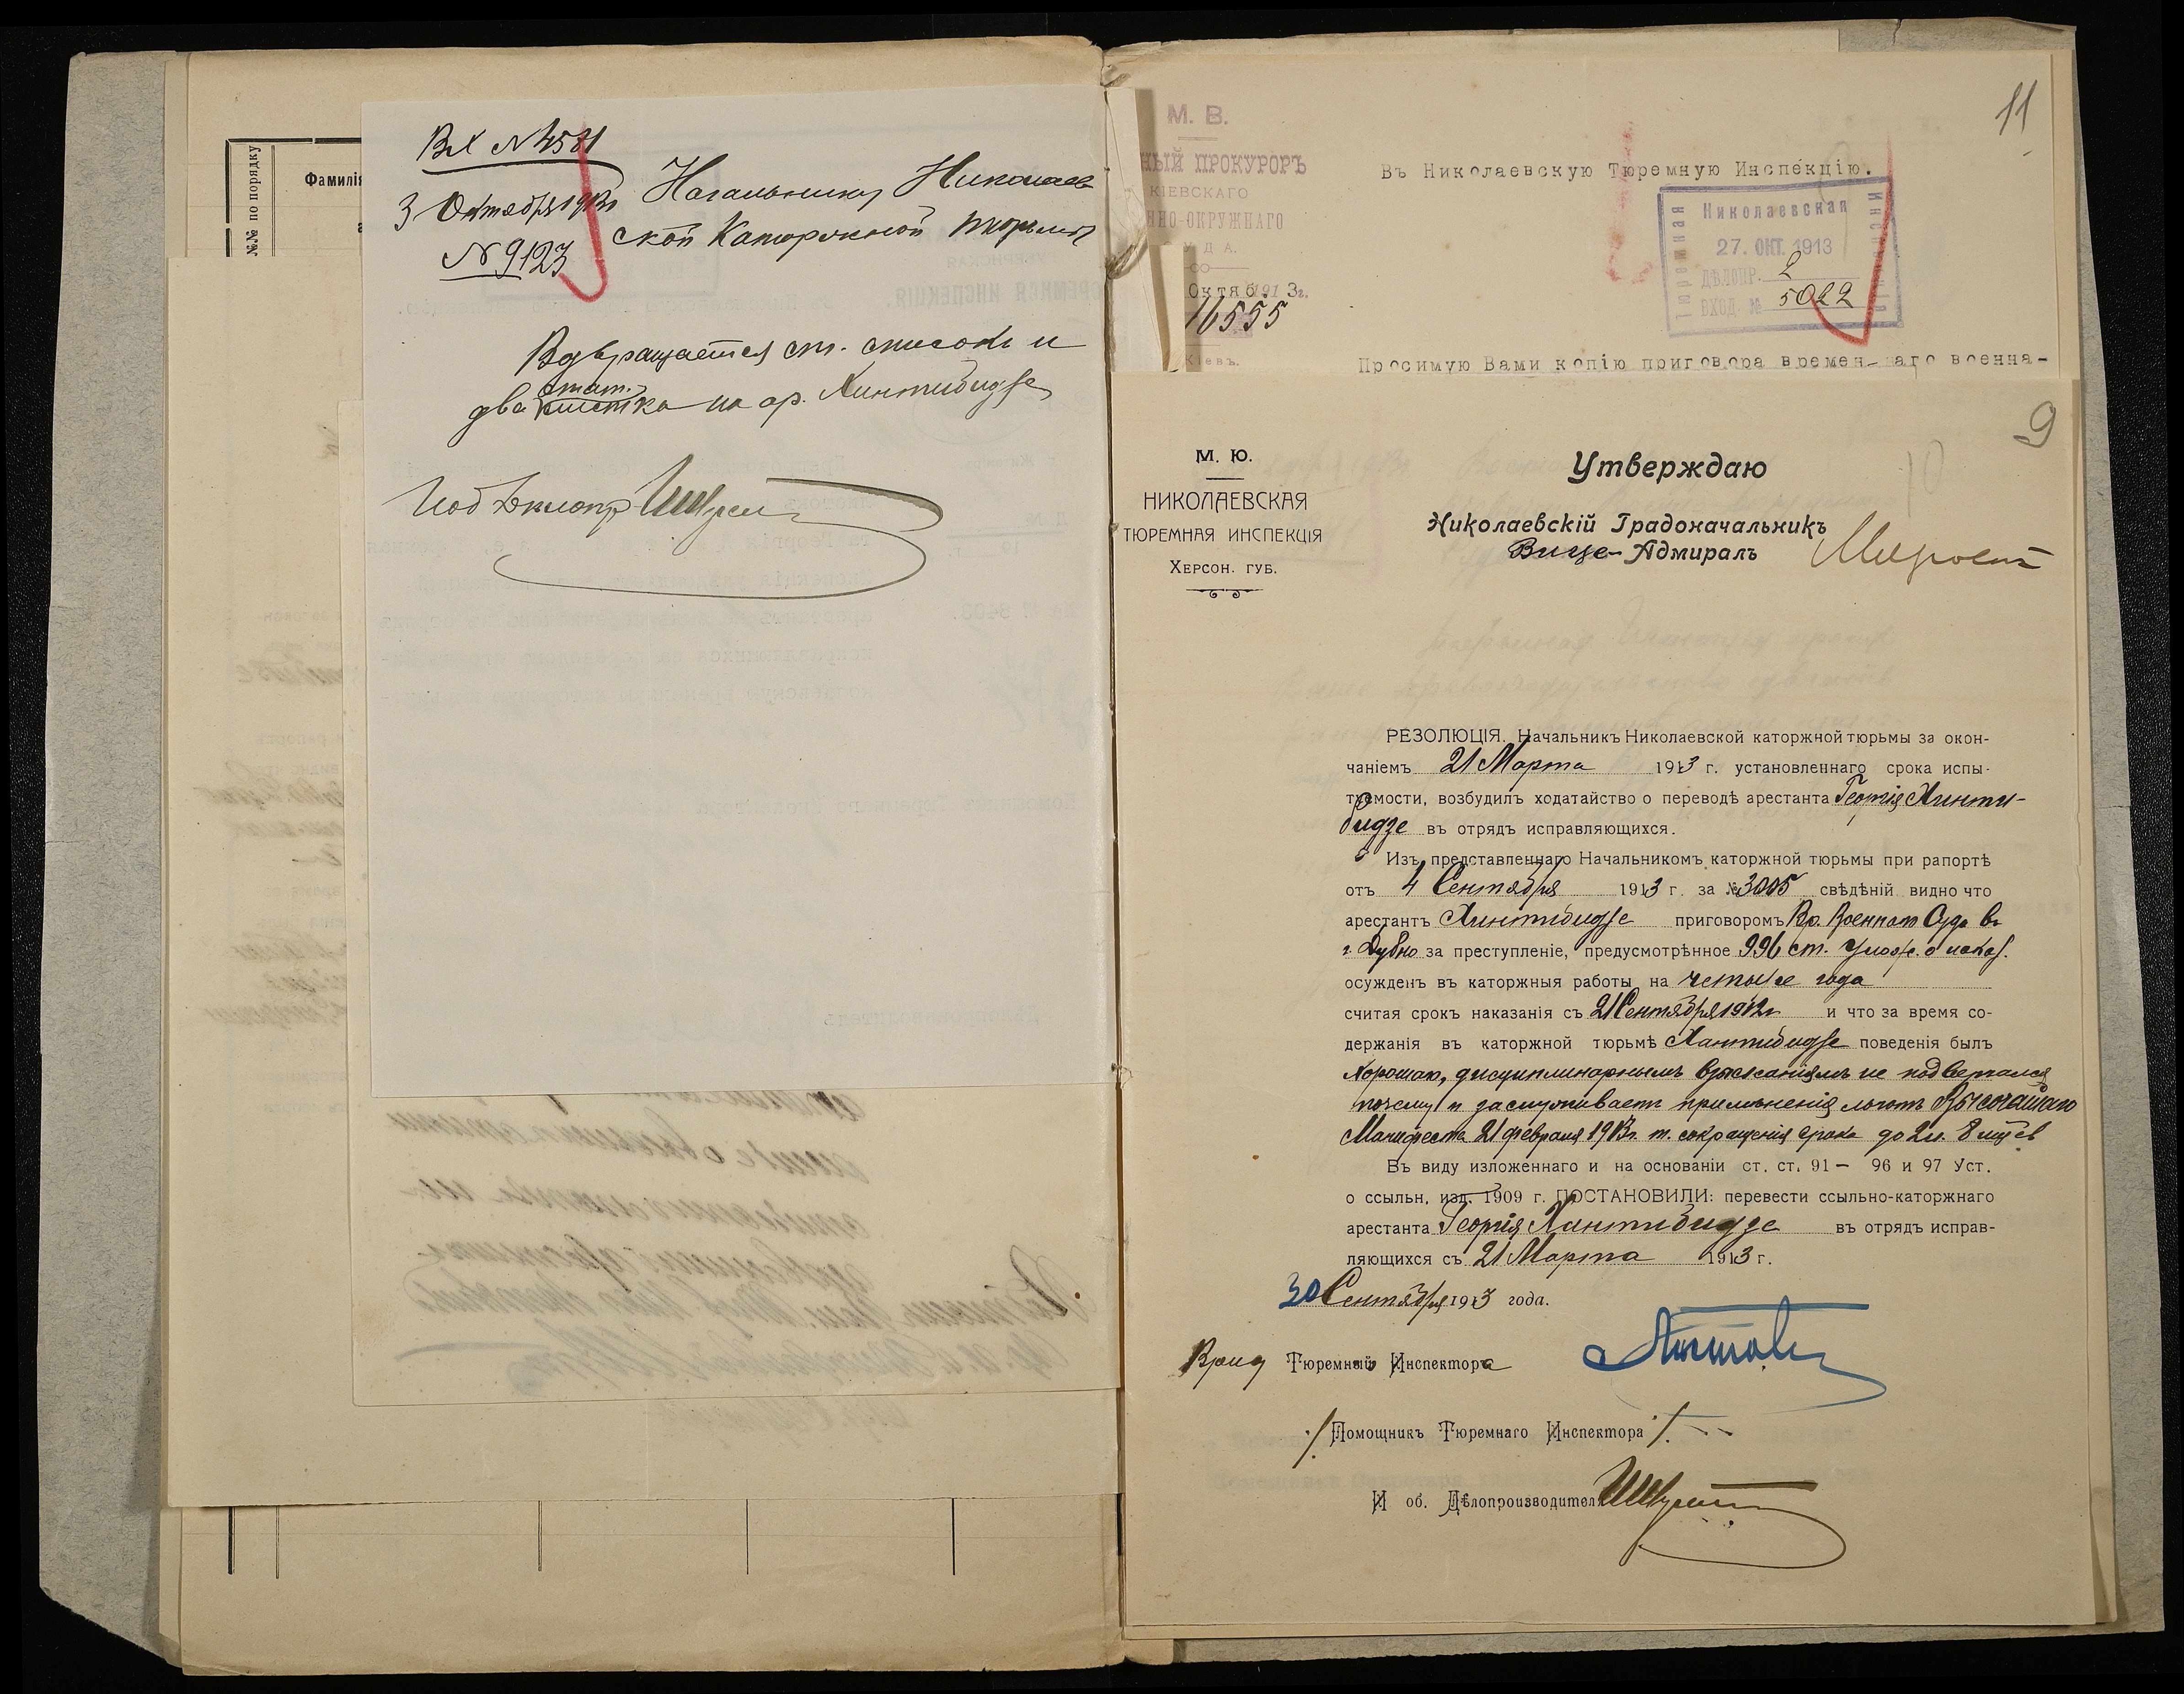 №№ по порядку
Фамилія
Вх №4581
3 Октября 1913 г
№ 9123
Начальнику Николаев
ской Каторжной тюрьмы
Возвращается ст. списокъ и
два стат. листка на ар. Хинтибидзе
11
М. В.
НЫЙ ПРОКУРОРЪ
КІЕВСКАГО
ННО-ОКРУЖНАГО
У Д А.
Октяб 1913г.
16555
Кіевъ.
Въ Николаевскую Тюремную Инспекцію.
Николаевская
Тюремная
Инспекція
27. ОКТ. 1913
ДѢЛОПР. 2
ВХОД. № 5022
Просимую Вами копію приговора времен- наго военна-
9
10
М. Ю.
НИКОЛАЕВСКАЯ
ТЮРЕМНАЯ ИНСПЕКЦІЯ
ХЕРСОН. ГУБ.
Утверждаю
Николаевскій Градоначальникъ
Вице-Адмиралъ
РЕЗОЛЮЦІЯ. Начальникъ Николаевской каторжной тюрьмы за окон-
чаніемъ 21 Марта 1913 г. установленнаго срока испы-
туемости, возбудилъ ходатайство о переводѣ арестанта Георгія Хинти-
бидзе въ отрядъ исправляющихся.
Изъ представленнаго Начальникомъ каторжной тюрьмы при рапортѣ
отъ 4 Сентября 1913 г. за №3005 свѣдѣній видно что
арестантъ Хинтибидзе приговоромъ Вр. Военнаго Суда въ
г Дубно за преступленіе, предусмотрѣнное 996 ст. Улож. о наказ.
осужденъ въ каторжныя работы на четыре года
считая срокъ наказанія съ 21 Сентября 1912 г и что за время со-
держанія въ каторжной тюрьмѣ Хинтибидзе поведенія былъ
хорошаго, дисциплинарнымъ взысканіямъ не подвергался
почему и заслуживаетъ примѣненія льготъ Высочайшаго
Манифеста 21 февраля 1913 г. т. сокращенія срока до 2 л. 8 м-цев
Въ виду изложеннаго и на основаніи ст. ст. 91— 96 и 97 Уст.
о ссыльн, изд. 1909 г. ПОСТАНОВИЛИ: перевести ссыльно-каторжнаго
арестанта Георгія Хинтибидзе въ отрядъ исправ-
ляющихся съ 21 Марта 1913 г.
30 Сентября 1913 года.
Врид Тюремный Инспектора
Помощникъ Тюремнаго Инспектора
И об. Дѣлопроизводителя